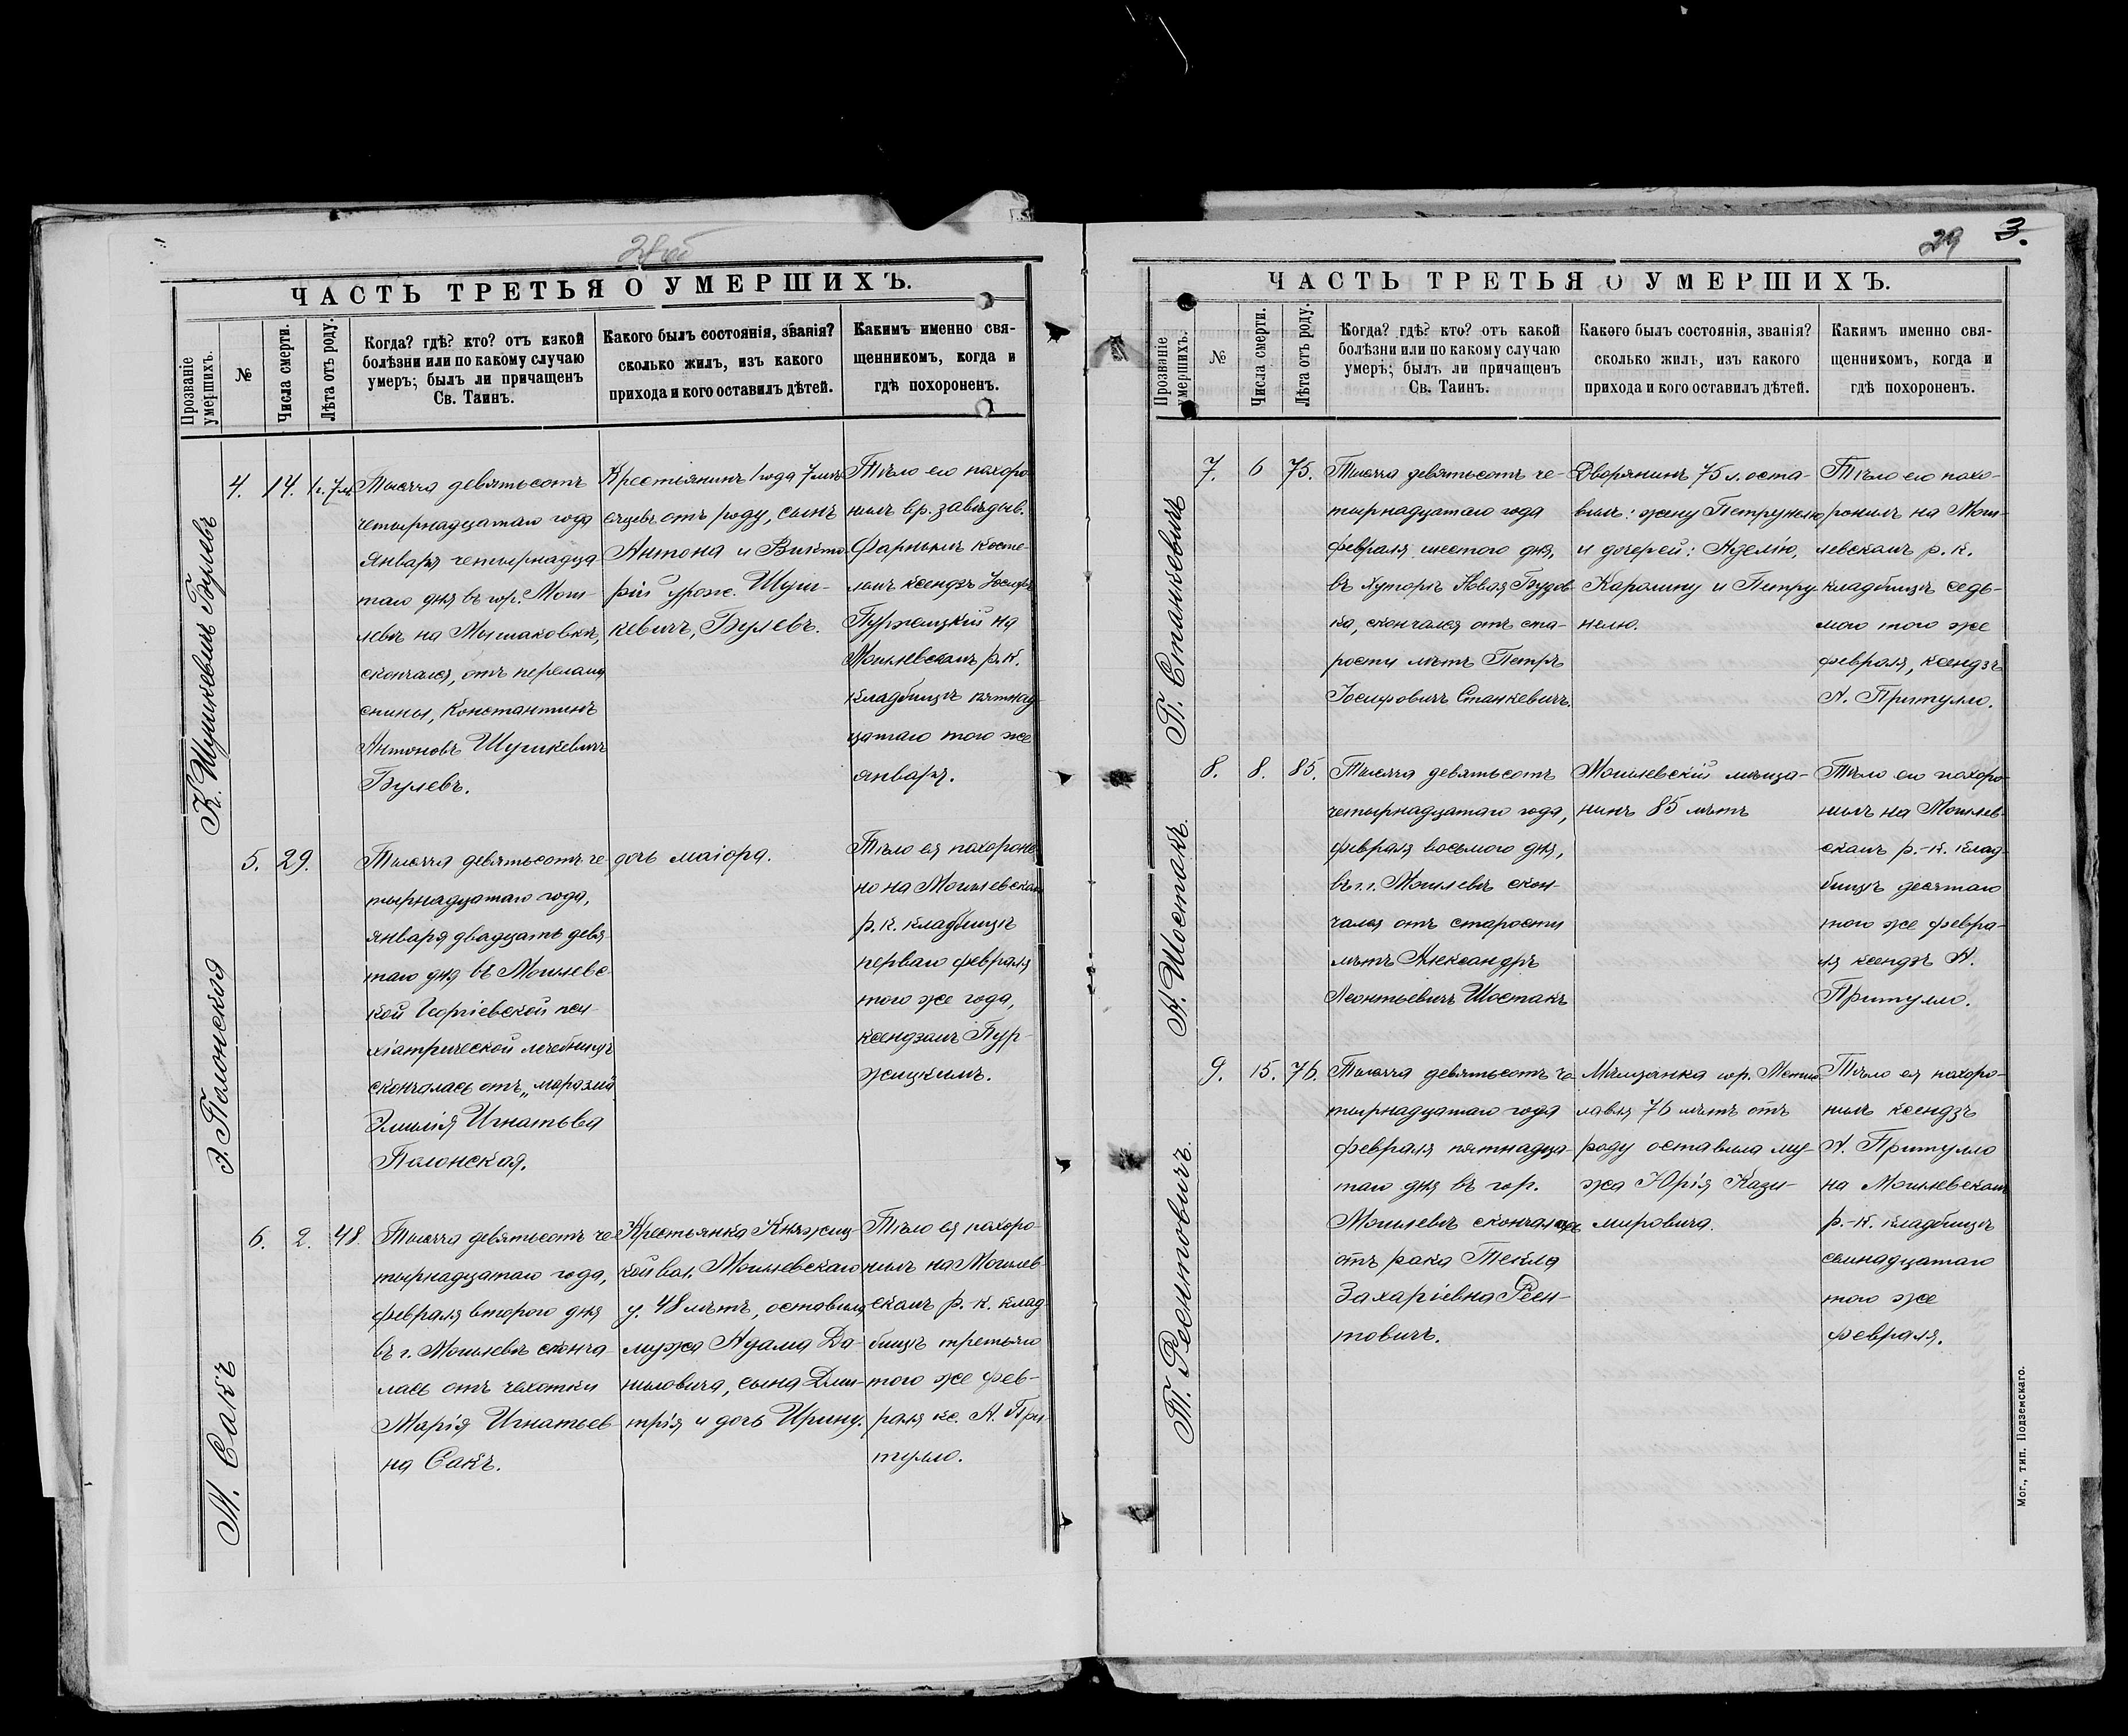 28 об
ЧАСТЬ ТРЕТЬЯ О УМЕРШИХЪ.
Прозваніе умершихъ.
№
Числа смерти.
Лѣта отъ роду.
Когда? гдѣ? кто? отъ какой
болѣзни или по какому случаю
умеръ; былъ ли причащенъ
Св. Таинъ.
Какого былъ состоянія, званія?
сколько жилъ, изъ какого
прихода и кого оставилъ дѣтей.
Какимъ именно свя-
щенникомъ, когда и
гдѣ похороненъ.
К. Шушкевичъ Булевъ
4.
14.
1г. 7м.
Тысяча девятьсотъ
четырнадцатаго года
января четырнадца
таго дня въ гор. Моги-
левѣ на Мышаковкѣ,
скончался, отъ перелома
спины, Константинъ
Антоновъ Шушкевичъ
Булевъ.
Крестьянинъ 1 года 7 мѣ
сяцевъ отъ роду, сынъ
Антона и Викто
ріи урож. Шуш-
кевичъ, Булевъ.
Тѣло его похоро
нилъ вр. завѣдыв.
Фарнымъ косте-
ломъ ксендзъ Іосифъ
Пуржицкій на
Могилевскомъ р.к.
кладбищѣ пятнад
цатаго того же
января.
Э. Полонская
5.
29.
Тысяча девятьсотъ че
тырнадцатаго года,
января двадцать девя
таго дня въ Могилевс
кой Георгіевской пси-
хіатрической лечебницѣ
скончалась отъ „маразма
Эмилія Игнатьева
Полонская.
дочь маіора.
Тѣло ея похороне
но на Могилевском
р.к. кладбищѣ
перваго февраля
того же года,
ксендзомъ Пур-
жицкимъ.
М. Сакъ
6.
2.
48.
Тысяча девятьсотъ че
тырнадцатаго года,
февраля второго дня
въ г. Могилевѣ сконча-
лась отъ чахотки
Марія Игнатьев
на Сакъ.
Крестьянка Княжиц
кой вол. Могилевскаго
у. 48 лѣтъ, оставила
мужа Адама Да-
ниловича, сына Дми-
трія и дочь Ирину.
Тѣло ея похоро-
нилъ на Могилев-
скомъ р.-к. клад
бищѣ третьяго
того же фев-
раля кс. А. При
тулло.
29 3.
ЧАСТЬ ТРЕТЬЯ О УМЕРШИХЪ.
Прозваніе умершихъ.
№
Числа смерти.
Лѣта отъ роду.
Когда? гдѣ? кто? отъ какой
болѣзни или по какому случаю
умеръ; былъ ли причащенъ
Св. Таинъ.
Какого былъ состоянія, званія?
сколько жилъ, изъ какого
прихода и кого оставилъ дѣтей.
Какимъ именно свя-
щенникомъ, когда и
гдѣ похороненъ.
П. Станкевичъ
7.
6
75.
Тысяча девятьсотъ че-
тырнадцатаго года
февраля шестого дня,
въ хуторѣ Новая Будов
ка, скончался отъ ста-
рости лѣтъ Петръ
Іосифовичъ Станкевичъ.
Дворянинъ 75 л. оста-
вилъ: жену Петрунелю
и дочерей: Аделію,
Каролину и Петру-
нелю.
Тѣло его похо-
ронилъ на Моги-
левскомъ р. к.
кладбищѣ седь-
мого того же
февраля, ксендзъ
А. Притулло.
А. Шостакъ.
8.
8.
85.
Тысяча девятьсотъ
четырнадцатаго года,
февраля восьмого дня,
въ г. Могилевѣ скон-
чался отъ старости
лѣтъ Александръ
Леонтьевичъ Шостакъ
Могилевскій мѣща-
нинъ 85 лѣтъ
Тѣло его похоро-
нилъ на Могилев-
скомъ р.-к. клад-
бищѣ десятаго
того же февра-
ля ксендзъ А.
Притулло.
Т. Рентовичъ.
9.
15.
76.
Тысяча девятьсотъ че
тырнадцатаго года
февраля пятнадца-
таго дня въ гор.
Могилевѣ скончалась
отъ рака Текля
Захаріевна Реен-
товичъ.
Мѣщанка гор. Мсти
лавля 76 лѣтъ отъ
роду оставила му-
жа Юрія Кази-
мировича.
Тѣло ея похоро-
нилъ ксендзъ
А. Притулло
на Могилевскомъ
р.-к. кладбищѣ
семнадцатаго
того же
февраля.
Мог., тип. Подземскаго.